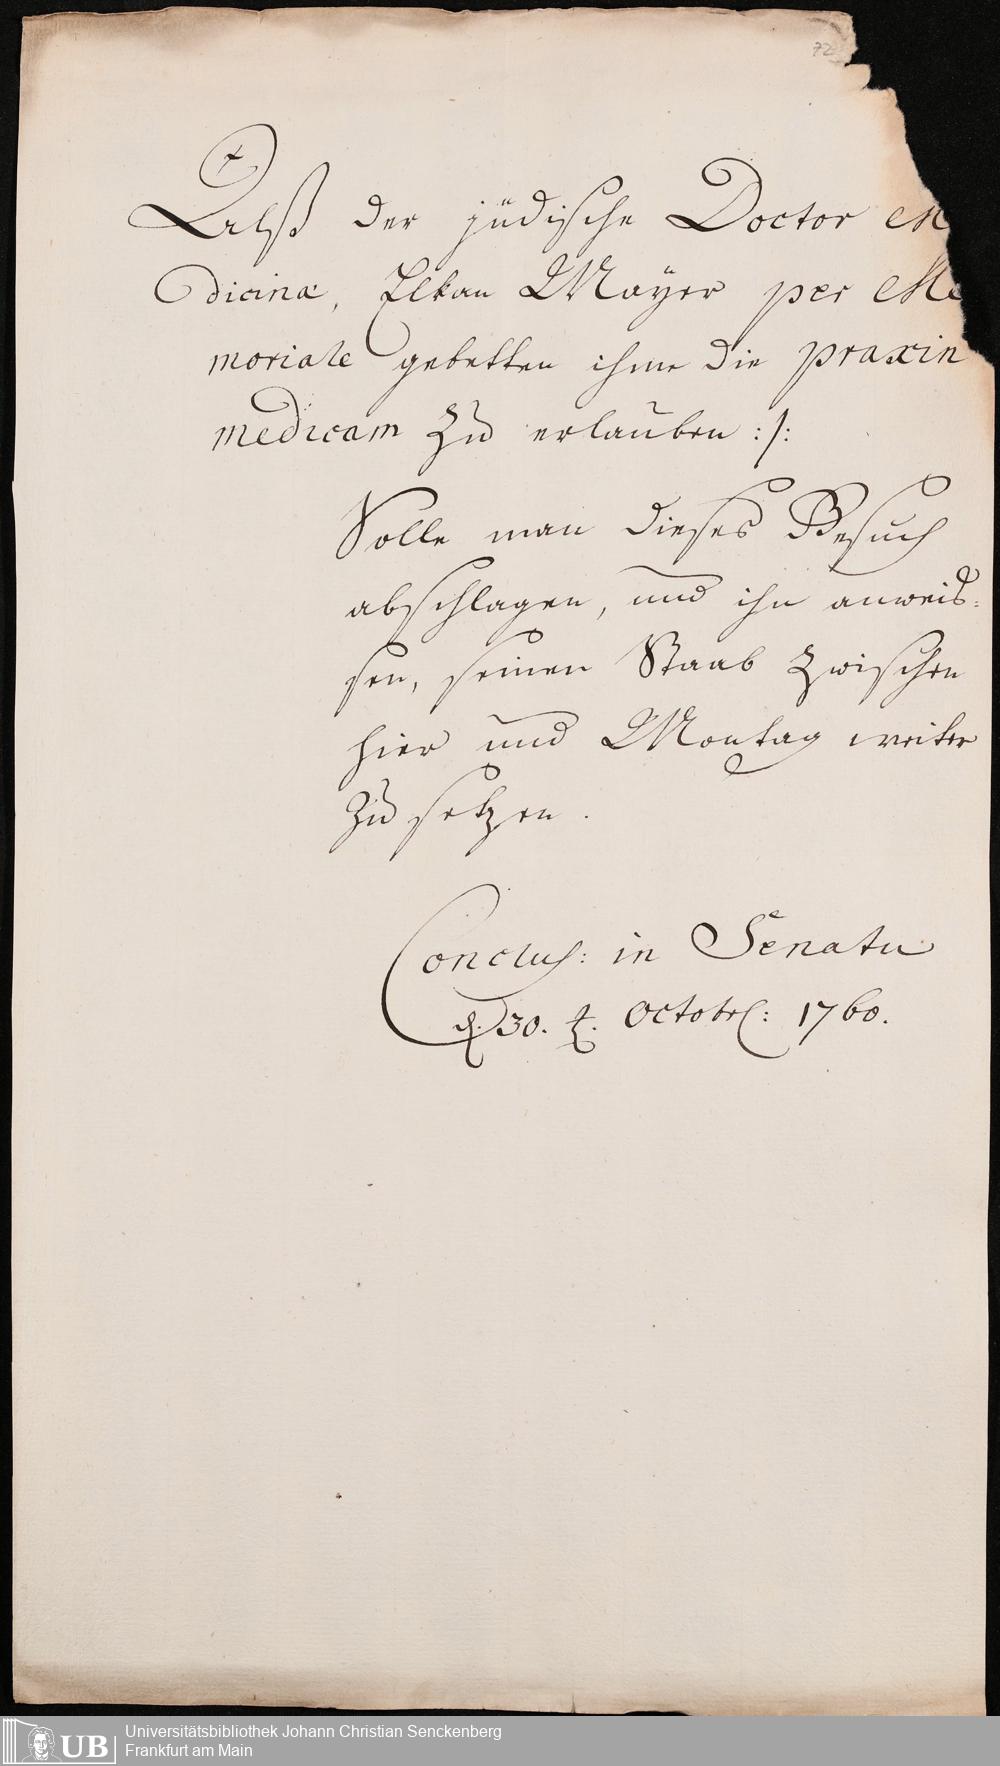 72
Alß der jüdische Doctor M
dicinæ, Elkan Mayer per Me
moriale gebetten ihme die praxin
medicam zu erlauben :/:
Solle man dieses Gesuch
abschlagen, und ihn anweis=
sen, seinen Staab zwischen
hier und Montag weiter
zu setzen.
Conclus: in Senatu
d. 30. t. Octobr: 1760.
UB
Universitätsbibliothek Johann Christian Senckenberg
Frankfurt am Main